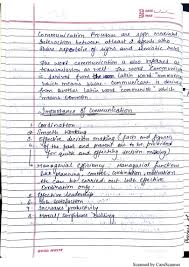 Communication Processes are sign mediated
interaction between at least 2 agents who
share repertoire of signs and semiotic rules
The word communication is also referred as
transmission as well. The word Communication
is derived from the Latin word
which means share. communicare is derived
from another latin word 'communis' which
means common.
Importance of Communication
Coordination
Smooth Working
Effective decision making (facts and figures
of the past and present can be provided
for quick and effective decision making)
Managerial Efficiency: Managerial functions
like planning, control, coordination, motivation
etc can be carried out into effective
Coordination only
Effective leadership
Job satisfaction
Increases productivity
Morale building
Scanned by CamScanner